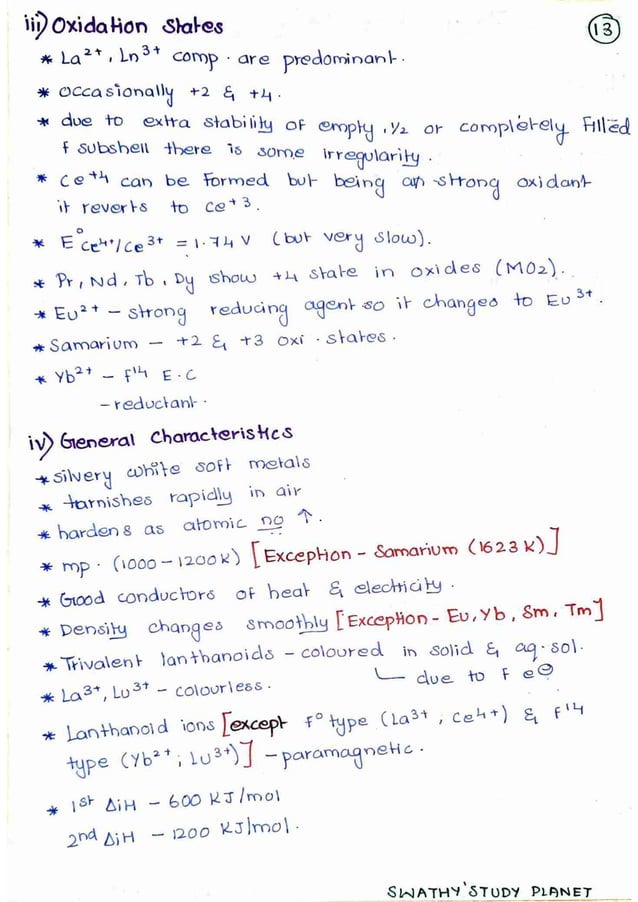 iii) Oxidation States
13
* La²⁺, Ln³⁺ comp. are predominant.
* Occasionally +2 & +4.
* due to extra stability of empty, ½ or completely Filled
f subshell there is some irregularity.
* Ce⁺⁴ can be formed but being an strong oxidant
it reverts to Ce⁺³.
* E°Ce⁴⁺/Ce³⁺ = 1.74 V (but very slow).
* Pr, Nd, Tb, Dy show +4 state in oxides (MO2).
* Eu²⁺ - strong reducing agent so it changes to Eu³⁺.
* Samarium - +2 & +3 oxi. states.
* Yb²⁺ - f¹⁴ E.C
- reductant.
iv) General Characteristics
* silvery white soft metals
* tarnishes rapidly in air
* hardens as atomic no ↑.
* mp. (1000-1200K) [Exception - Samarium (1623 K)]
* Good conductors of heat & electricity.
* Density changes smoothly [Exception - Eu, Yb, Sm, Tm]
* Trivalent lanthanoids - coloured in solid & aq. sol.
* La³⁺, Lu³⁺ - colourless.
due to f e⊖
* Lanthanoid ions [except f⁰ type (La³⁺, Ce⁴⁺) & f¹⁴
type (Yb²⁺; Lu³⁺)] - paramagnetic.
* 1st ΔiH - 600 KJ/mol
2nd ΔiH - 1200 KJ/mol.
SWATHY'STUDY PLANET